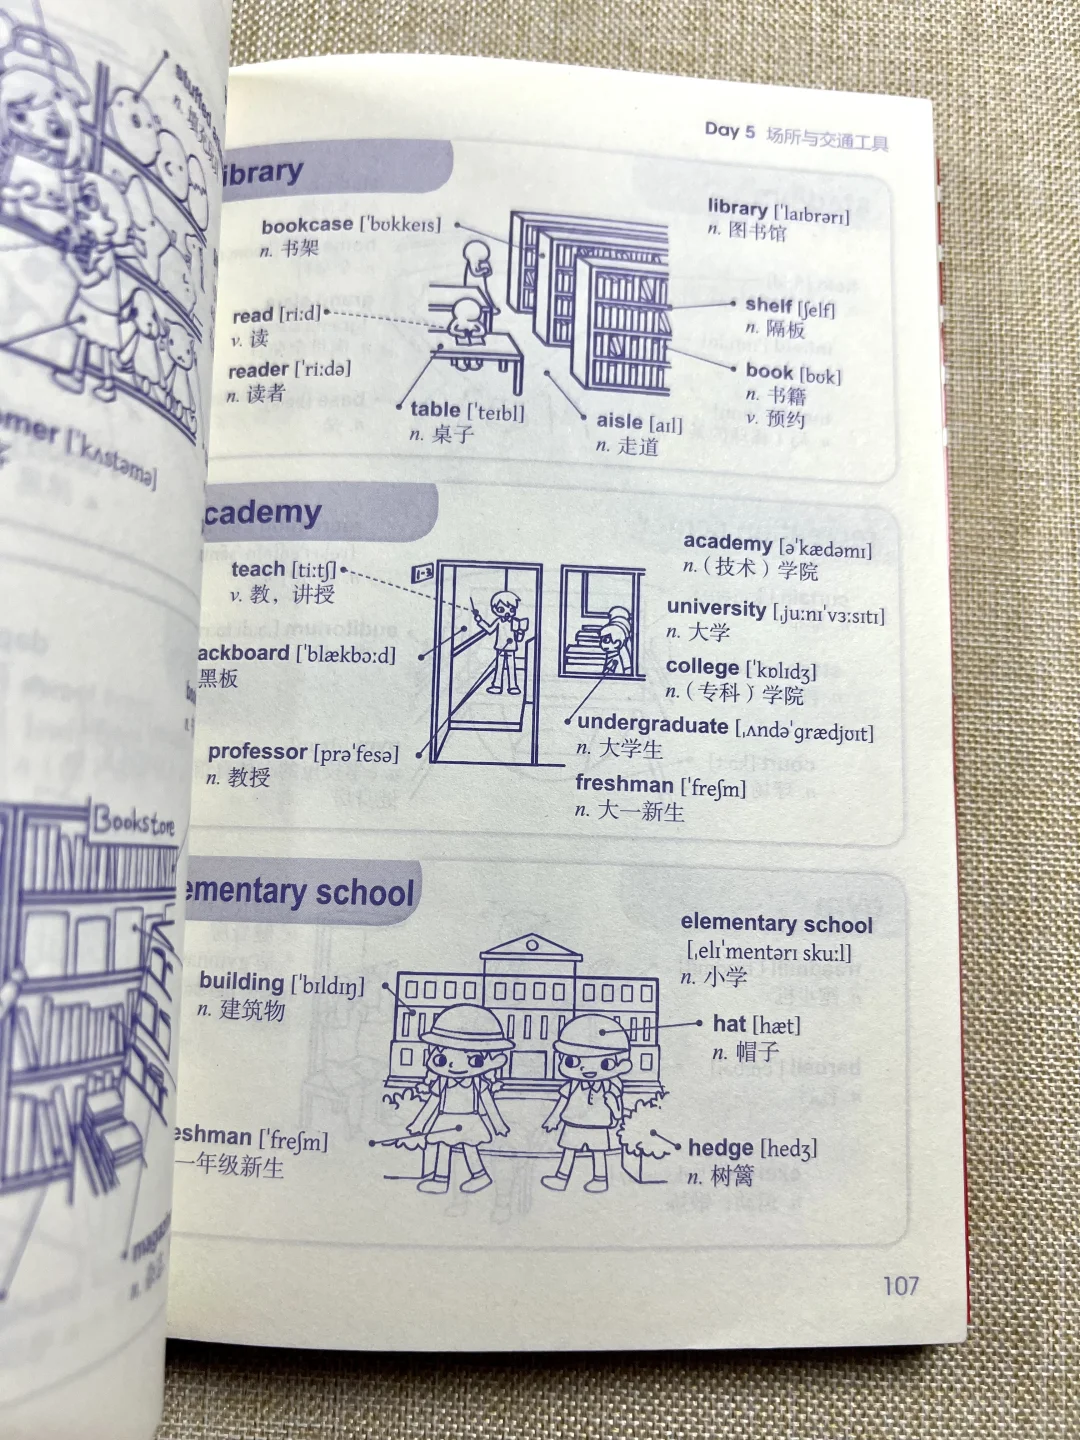 Day 5 场所与交通工具
ibrary
bookcase ['bʊkkeɪs]
n. 书架
library ['laɪbrərɪ]
n. 图书馆
read [ri:d]
v. 读
reader ['ri:də]
n. 读者
shelf [ʃelf]
n. 隔板
book [bʊk]
n. 书籍
v. 预约
table ['teɪbl]
n. 桌子
aisle [aɪl]
n. 走道
cademy
teach [ti:tʃ]
v. 教，讲授
1-3
ackboard ['blækbɔ:d]
黑板
professor [prə'fesə]
n. 教授
academy [ə'kædəmɪ]
n.（技术）学院
university [ˌju:nɪ'vɜ:sɪtɪ]
n. 大学
college ['kɒlɪdʒ]
n.（专科）学院
undergraduate [ˌʌndə'grædjʊɪt]
n. 大学生
freshman ['freʃm]
n. 大一新生
ementary school
elementary school
[ˌelɪ'mentərɪ sku:l]
n. 小学
building ['bɪldɪŋ]
n. 建筑物
hat [hæt]
n. 帽子
eshman ['freʃm]
一年级新生
hedge [hedʒ]
n. 树篱
107
stuffed
n. 填充
omer ['kʌstəmə]
Bookstore
n.